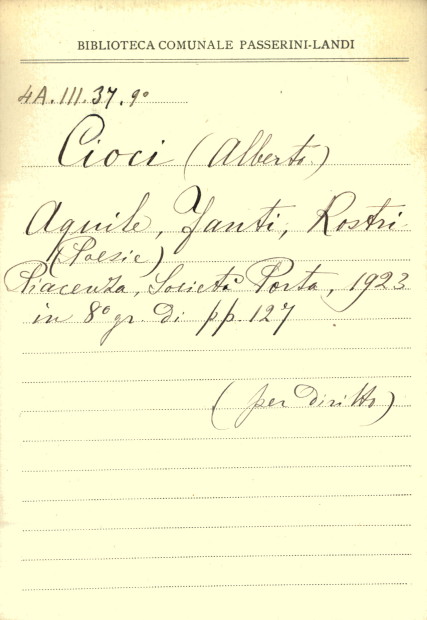 BIBLIOTECA COMUNALE PASSERINI-LANDI
4A.III.37.9º
Cioci (Alberto)
Aquile, Fanti, Rostri
(Poesie)
Piacenza, Società Porta, 1923
in 8º gr. di pp. 127
(per diritto)